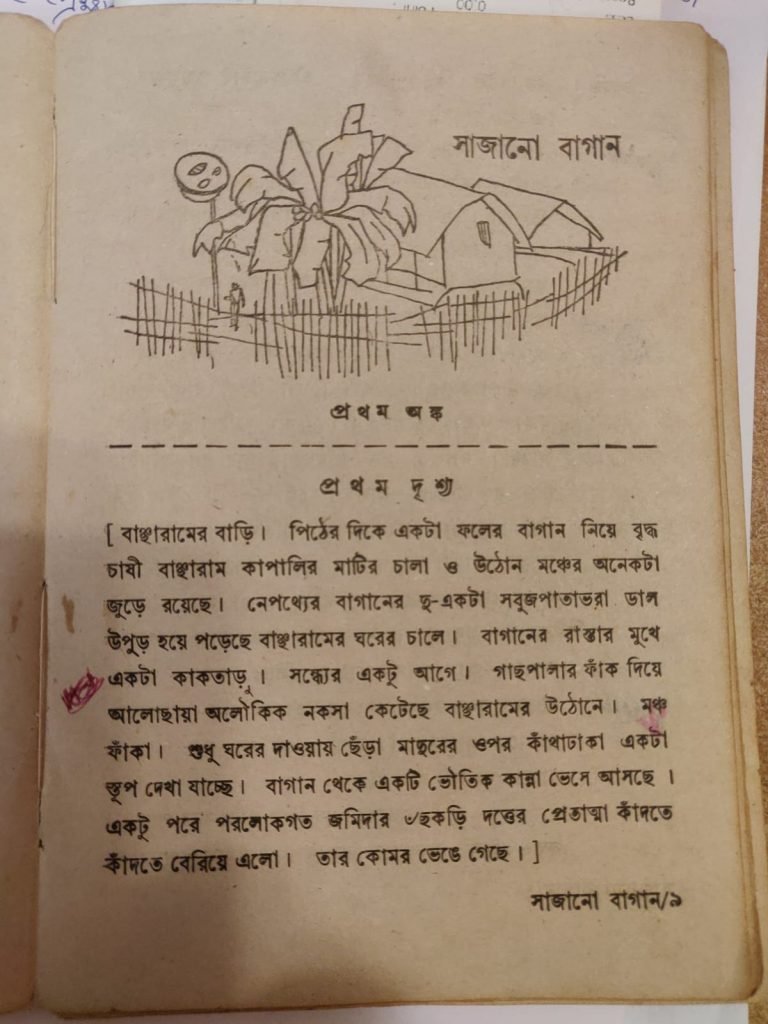 সাজানো বাগান
প্রথম অঙ্ক
প্রথম দৃশ্য
[ বাঞ্ছারামের বাড়ি। পিঠের দিকে একটা ফলের বাগান নিয়ে বৃদ্ধ
চাষী বাঞ্ছারাম কাপালির মাটির চালা ও উঠোন মঞ্চের অনেকটা
জুড়ে রয়েছে। নেপথ্যের বাগানের দু-একটা সবুজপাতাভরা ডাল
উপুড় হয়ে পড়েছে বাঞ্ছারামের ঘরের চালে। বাগানের রাস্তার মুখে
একটা কাকতাড়ু। সন্ধ্যের একটু আগে। গাছপালার ফাঁক দিয়ে
আলোছায়া অলৌকিক নকসা কেটেছে বাঞ্ছারামের উঠোনে। মঞ্চ
ফাঁকা। শুধু ঘরের দাওয়ায় ছেঁড়া মাদুরের ওপর কাঁথাঢাকা একটা
স্তূপ দেখা যাচ্ছে। বাগান থেকে একটি ভৌতিক কান্না ভেসে আসছে।
একটু পরে পরলোকগত জমিদার ৺ছকড়ি দত্তের প্রেতাত্মা কাঁদতে
কাঁদতে বেরিয়ে এলো। তার কোমর ভেঙে গেছে। ]
সাজানো বাগান/৯